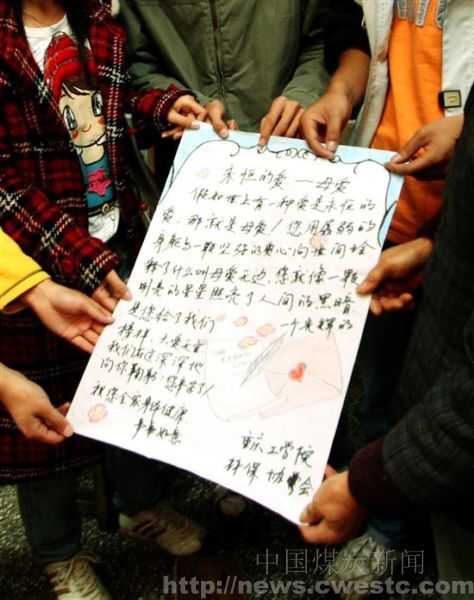 永恒的爱——母爱
假如世上有一种爱是永恒的
爱,那就是母爱!您用孱弱的
身躯与一颗坚强的爱心向世间诠
释了什么叫母爱无边,您就像一颗
明亮的星星照亮了人间的黑暗
是您给了我们 一个光辉的
榜样,大爱无
我们在这深深地
向你鞠躬:您辛苦了!
祝您全家身体健康
事事如意
重庆工学院
环保协会
中国煤炭新闻
http://news.cwestc.com